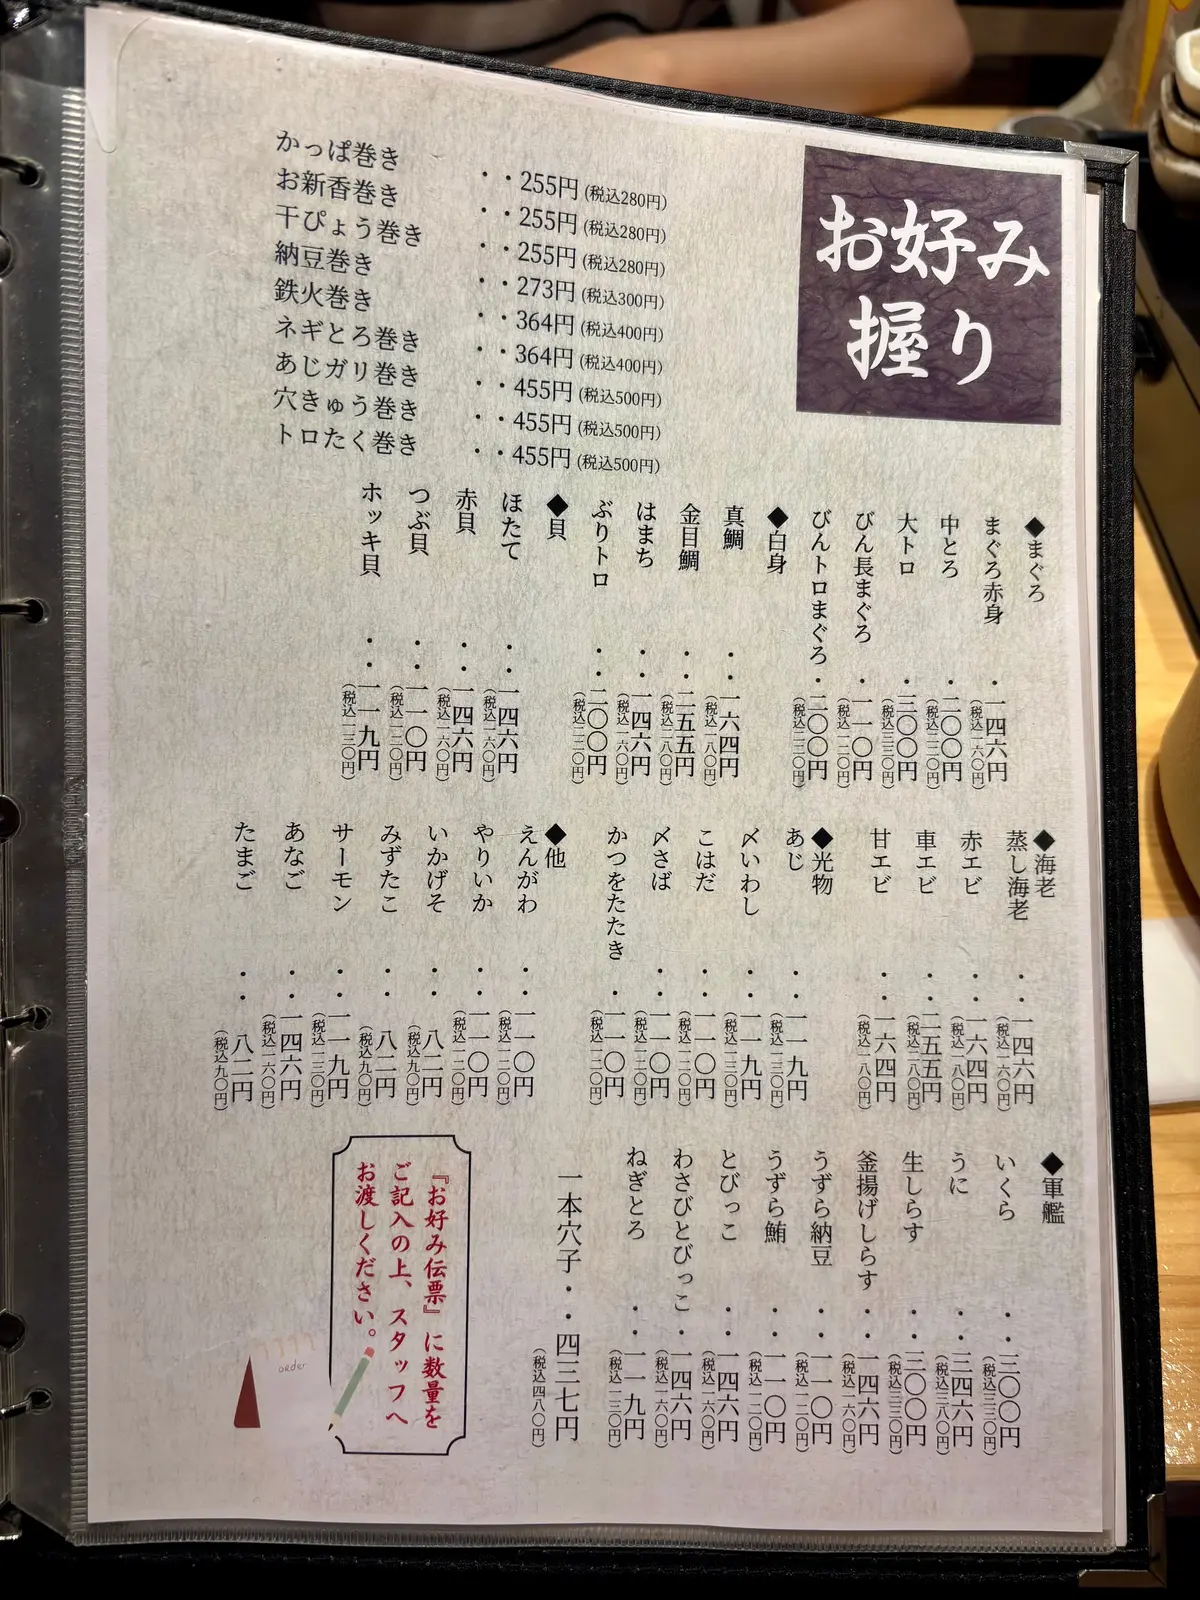 お好み
握り
◆まぐろ
まぐろ赤身・一四六円(税込一六〇円)
中とろ・二〇〇円(税込二二〇円)
大トロ・三〇〇円(税込三三〇円)
びん長まぐろ・一一〇円(税込一二〇円)
びんトロまぐろ・二〇〇円(税込二二〇円)
◆白身
真鯛・・一六四円(税込一八〇円)
金目鯛・・二五五円(税込二八〇円)
はまち・・一四六円(税込一六〇円)
ぶりトロ・・二〇〇円(税込二二〇円)
◆貝
ほたて・・一四六円(税込一六〇円)
赤貝・・一四六円(税込一六〇円)
つぶ貝・・一一〇円(税込一二〇円)
ホッキ貝・・一一九円(税込一三〇円)
かっぱ巻き・・255円(税込280円)
お新香巻き・・255円(税込280円)
干ぴょう巻き・・255円(税込280円)
納豆巻き・・273円(税込300円)
鉄火巻き・・364円(税込400円)
ネギとろ巻き・・364円(税込400円)
あじガリ巻き・・455円(税込500円)
穴きゅう巻き・・455円(税込500円)
トロたく巻き・・455円(税込500円)
◆海老
蒸し海老・・一四六円(税込一六〇円)
赤エビ・・一六四円(税込一八〇円)
車エビ・・二五五円(税込二八〇円)
甘エビ・・一六四円(税込一八〇円)
◆光物
あじ・・一一九円(税込一三〇円)
〆いわし・・一一九円(税込一三〇円)
こはだ・・一一〇円(税込一二〇円)
〆さば・・一一〇円(税込一二〇円)
かつをたたき・一一〇円(税込一二〇円)
◆他
えんがわ・・一一〇円(税込一二〇円)
やりいか・・一一〇円(税込一二〇円)
いかげそ・・八二円(税込九〇円)
みずたこ・・八二円(税込九〇円)
サーモン・・一一九円(税込一三〇円)
あなご・・一四六円(税込一六〇円)
たまご・・八二円(税込九〇円)
◆軍艦
いくら・・三〇〇円(税込三三〇円)
うに・・三四六円(税込三八〇円)
生しらす・・三〇〇円(税込三三〇円)
釜揚げしらす・・一四六円(税込一六〇円)
うずら納豆・・一一〇円(税込一二〇円)
うずら鮪・・一一〇円(税込一二〇円)
とびっこ・・一四六円(税込一六〇円)
わさびとびっこ・一四六円(税込一六〇円)
ねぎとろ・・一一九円(税込一三〇円)
一本穴子・・四三七円(税込四八〇円)
『お好み伝票』に数量を
ご記入の上、スタッフへ
お渡しください。
order